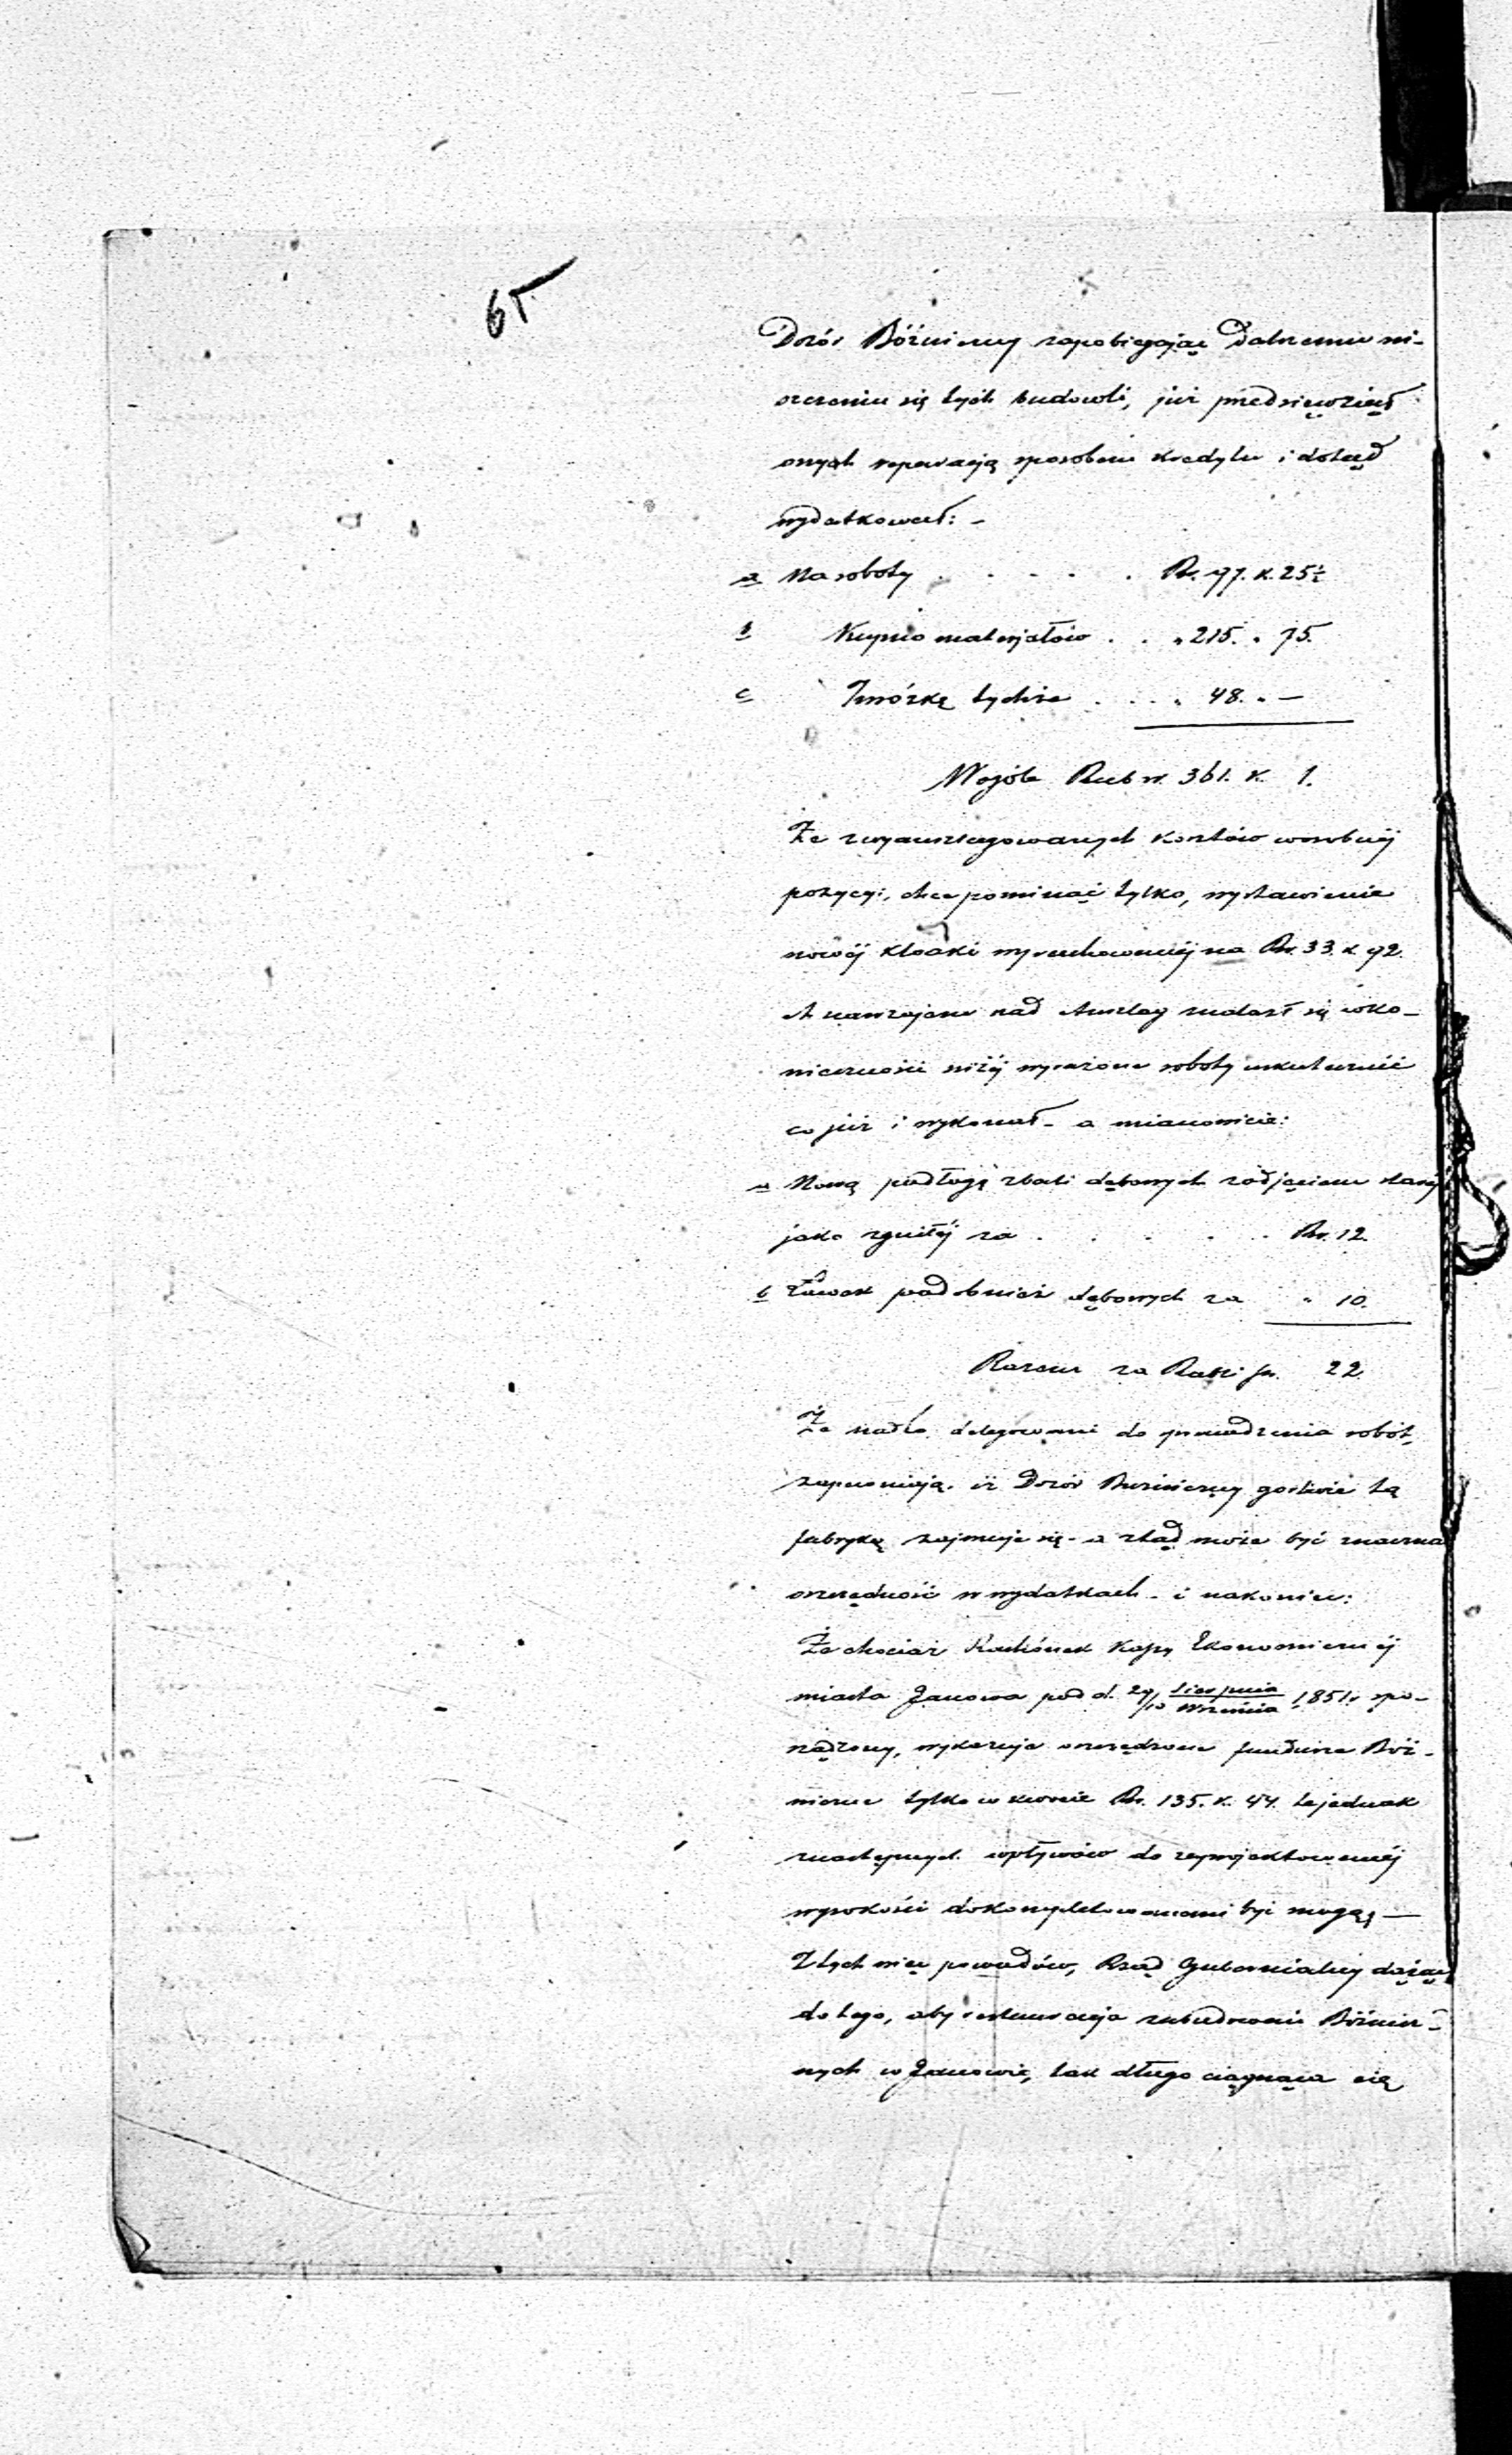 65
Dozór Bóżniczy zapobiegając dalszemu ni-
szczeniu się tych budowli, już przedsięwziął
onych reparacją sposobem kredytu i dotąd
wydatkował: -
a Na roboty . . . . . Rs. 97. k. 25½
b Kupno materjałów . . „ 215. „ 75.
c Zwózkę tychże . . . „ 48. „ —
Wogóle Rub sr. 361. k. 1.
Że z wyanszlagowanych kosztów w osobnéj
pozycyi, chce pominąć tylko, wystawienie
nowéj kloaki wyrachowanéj na Rs. 33 k 92.
A nawzajem nad Anszlag znalazł się w ko-
nieczności niżéj wyrażone roboty uskutecznić
co już i wykonał - a mianowicie:
a Nową podłogę z bali dębowych z odjęciem staréj
jako zgniłéj za . . . . . Rs. 12.
b Ławek podobnież dębowych za „ 10.
Razem za Rubli sr. 22.
Że nadto delegowani do prowadzenia robót
zapewniają, iż Dozór Bużniczny gorliwie tą
fabryką zajmuje się - a ztąd może być znaczna
oszczędność w wydatkach - i nakoniec:
Że chociaż Rachunek Kassy Ekonomicznéj
miasta Janowa pod d. 29/10 Sierpnia/Września 1851 r. spo-
rządzony, wykazuje oszczędzone fundusze Bóż-
nicze tylko w kwocie Rs. 135. k. 44. te jednak
z następnych wpływów do zaprojektowanéj
wysokości dokompletowanemi być mogą; —
Z tych więc powodów, Rząd Gubernialny dążąc
do tego, aby restauracja zabudowań Bóżnicz-
nych w Janowie, tak długo ciągnąca się